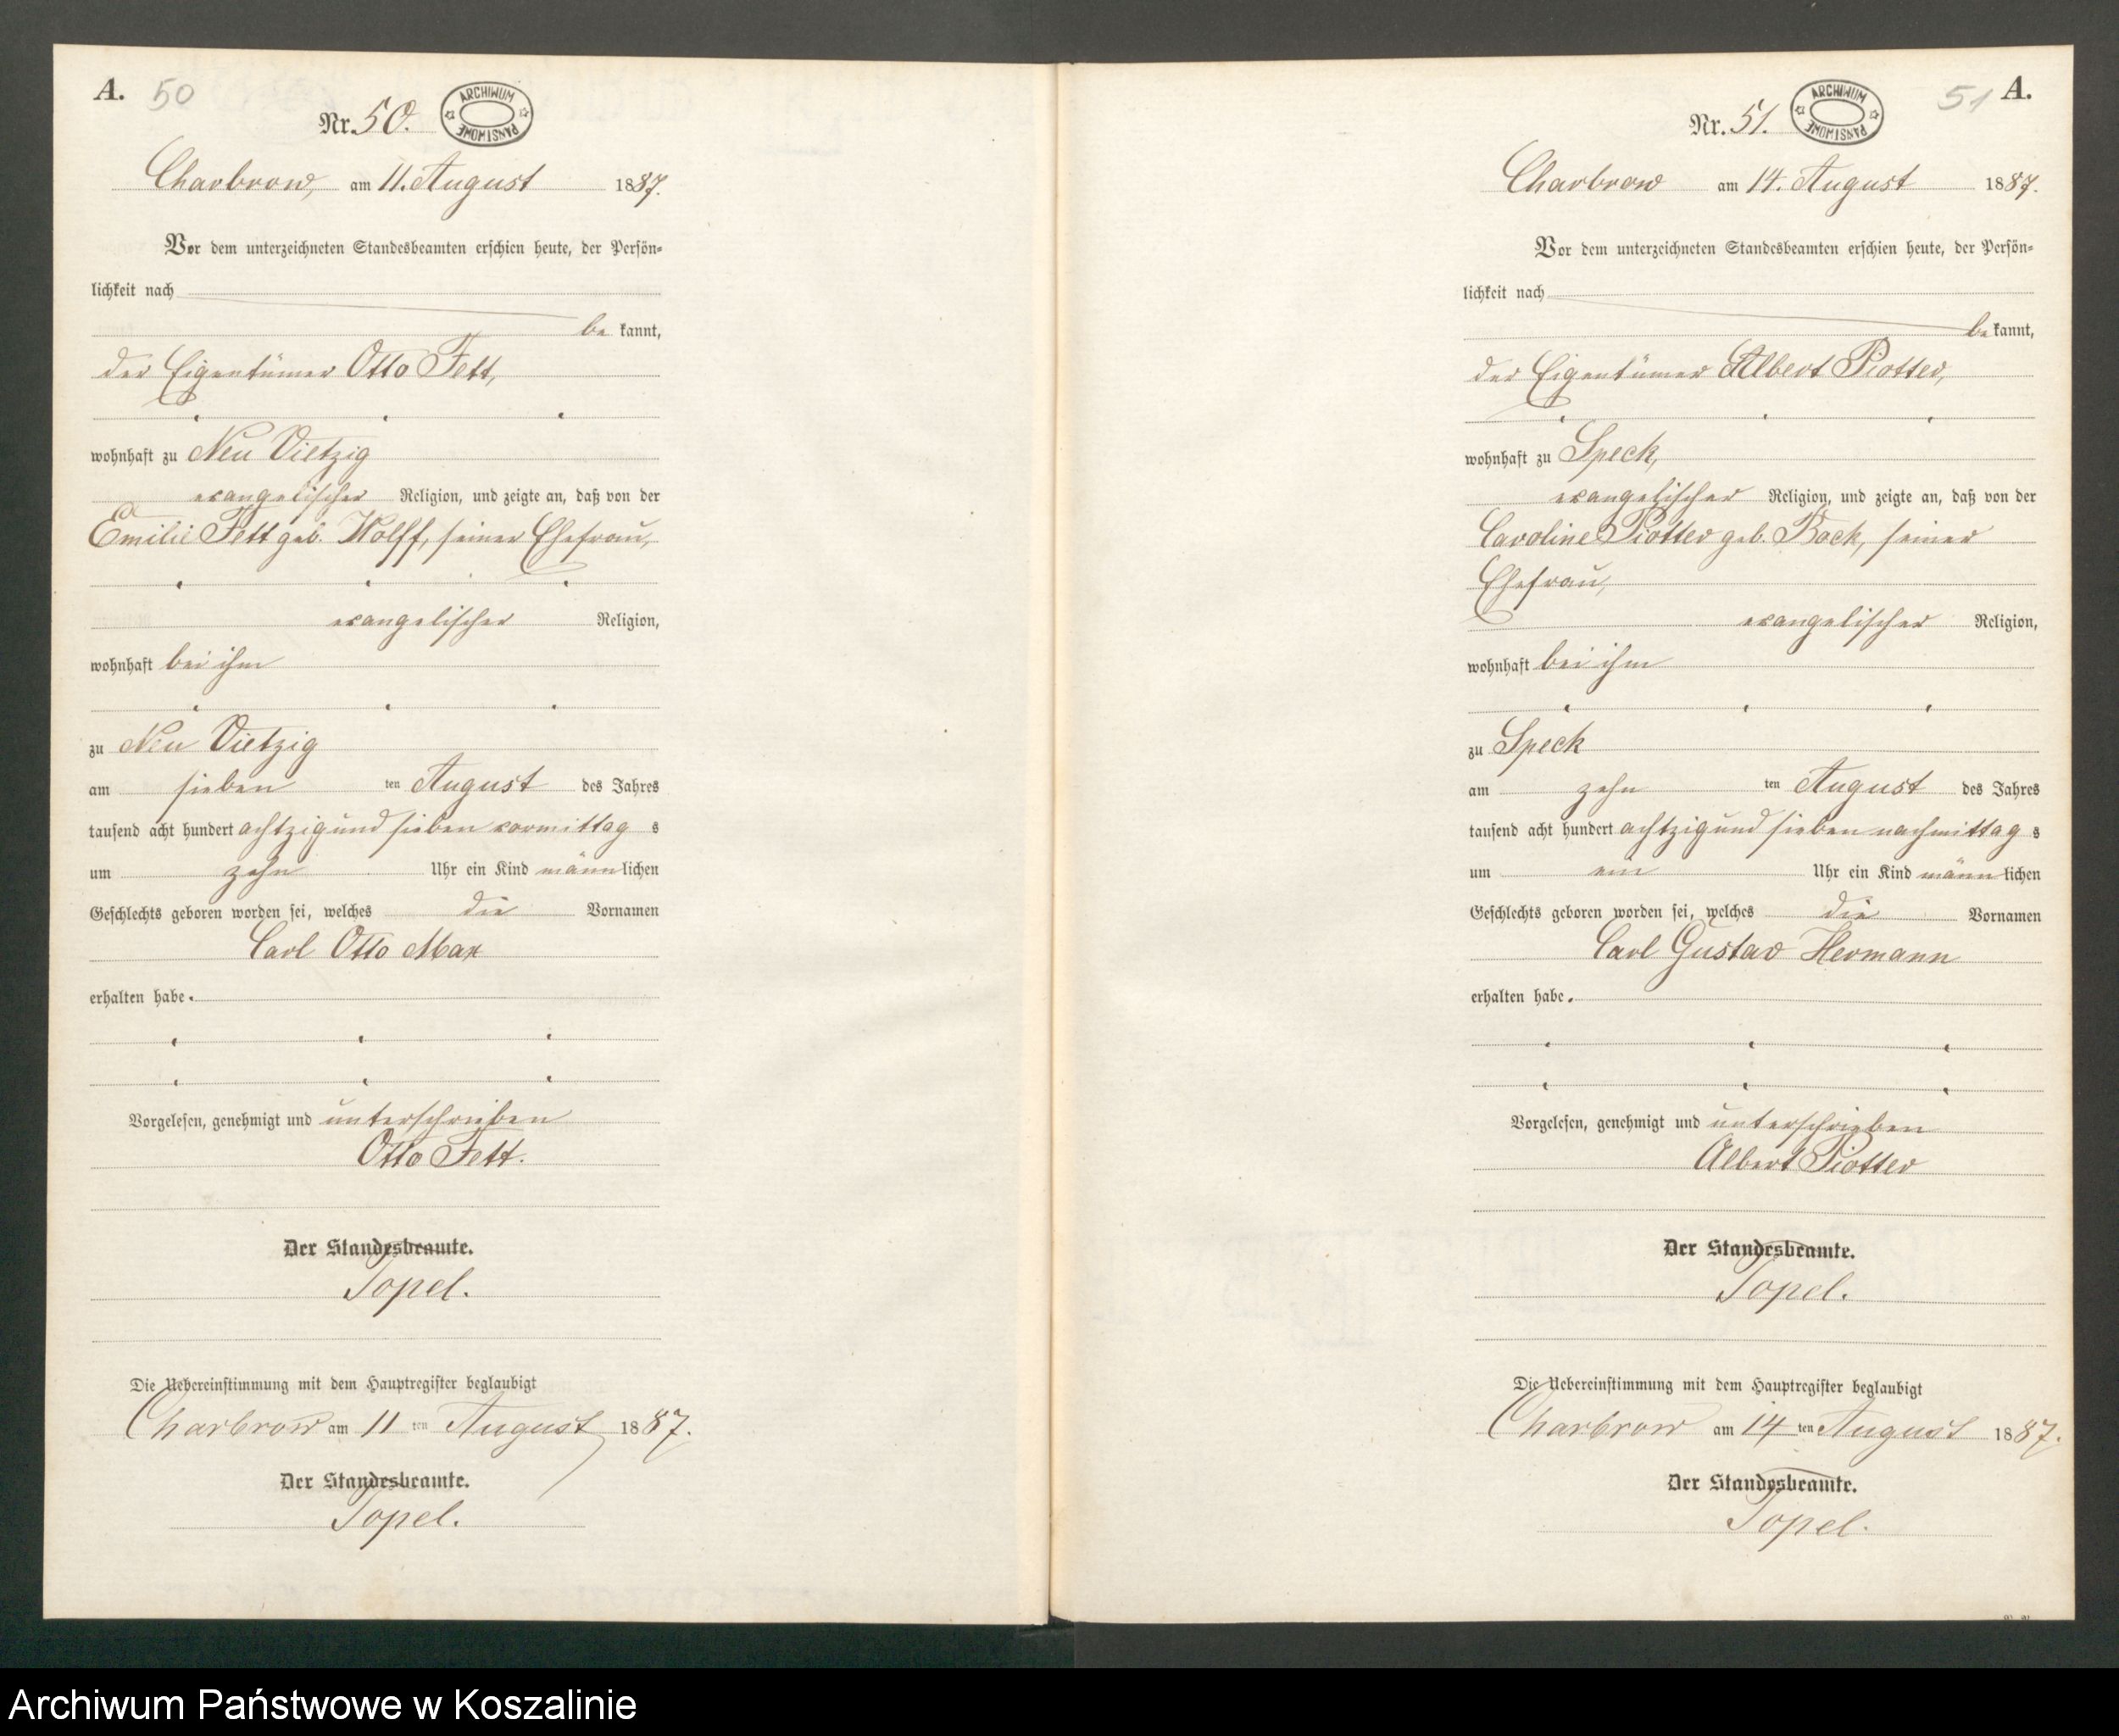 A. 50
Nr. 50.
ARCHIWUM PAŃSTWOWE
Charbrow, am 11. August 1887.
Vor dem unterzeichneten Standesbeamten erschien heute, der Persön-
lichkeit nach
be kannt,
der Eigentümer Otto Fett,
wohnhaft zu Neu Vietzig
evangelischer Religion, und zeigte an, daß von der
Emilie Fett geb. Wolff, seiner Ehefrau,
evangelischer Religion,
wohnhaft bei ihm
zu Neu Vietzig
am sieben ten August des Jahres
tausend acht hundert achtzig und sieben vormittag s
um zehn Uhr ein Kind männlichen
Geschlechts geboren worden sei, welches die Vornamen
Carl Otto Max
erhalten habe.
Vorgelesen, genehmigt und unterschrieben
Otto Fett.
Der Standesbeamte.
Topel.
Die Uebereinstimmung mit dem Hauptregister beglaubigt
Charbrow am 11 ten August 1887.
Der Standesbeamte.
Topel.
51 A.
Nr. 51.
ARCHIWUM PAŃSTWOWE
Charbrow am 14. August 1887.
Vor dem unterzeichneten Standesbeamten erschien heute, der Persön-
lichkeit nach
be kannt,
der Eigentümer Albert Piotter,
wohnhaft zu Speck,
evangelischer Religion, und zeigte an, daß von der
Caroline Piotter geb. Bock, seiner
Ehefrau,
evangelischer Religion,
wohnhaft bei ihm
zu Speck
am zehn ten August des Jahres
tausend acht hundert achtzig und sieben nachmittag s
um ein Uhr ein Kind männlichen
Geschlechts geboren worden sei, welches die Vornamen
Carl Gustav Hermann
erhalten habe.
Vorgelesen, genehmigt und unterschrieben
Albert Piotter
Der Standesbeamte.
Topel.
Die Uebereinstimmung mit dem Hauptregister beglaubigt
Charbrow am 14 ten August 1887.
Der Standesbeamte.
Topel.
Archiwum Państwowe w Koszalinie